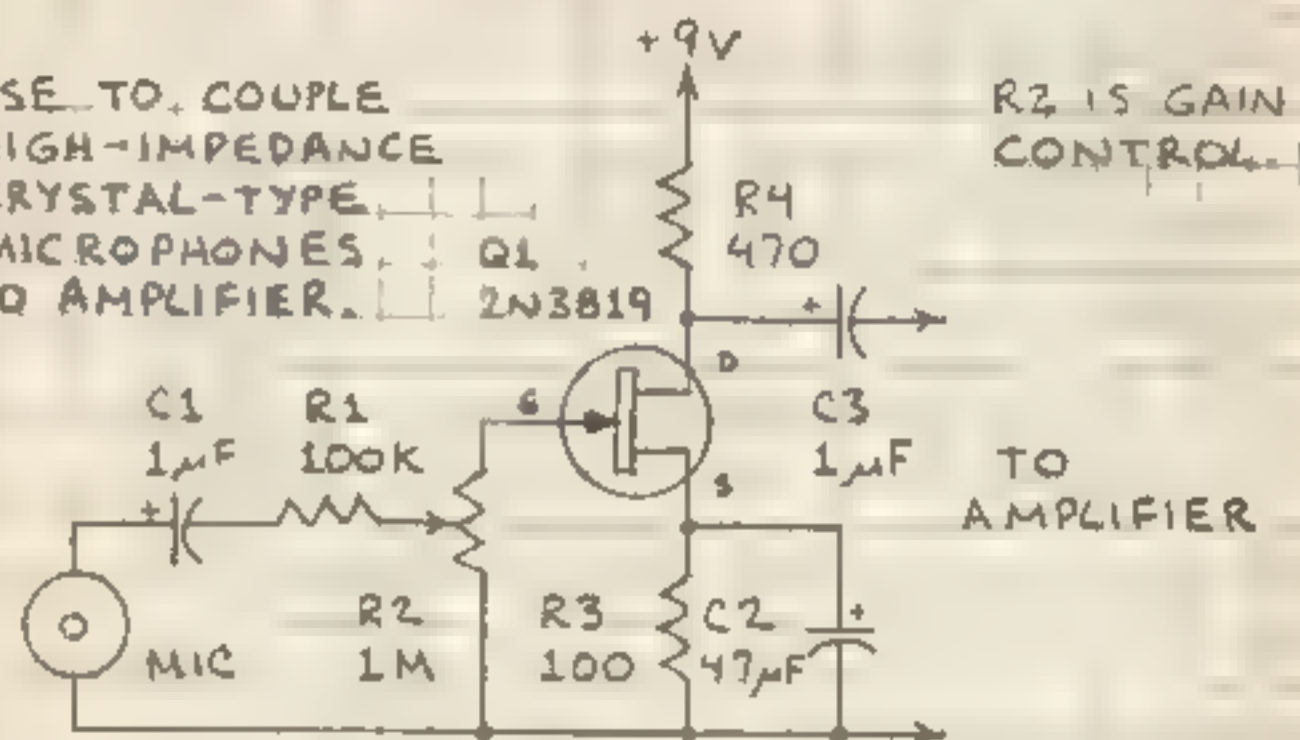 +9V
SE TO COUPLE
IGH-IMPEDANCE
RYSTAL-TYPE
MICROPHONES
O AMPLIFIER.
R2 IS GAIN
CONTROL.
R4
470
Q1
2N3819
+
D
G
S
C1
1µF
R1
100K
C3
1µF
TO
AMPLIFIER
+
R2
1M
R3
100
C2
47µF
+
MIC